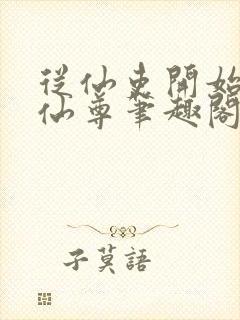 從仙吏開始
仙尊筆趣閣
子莫語